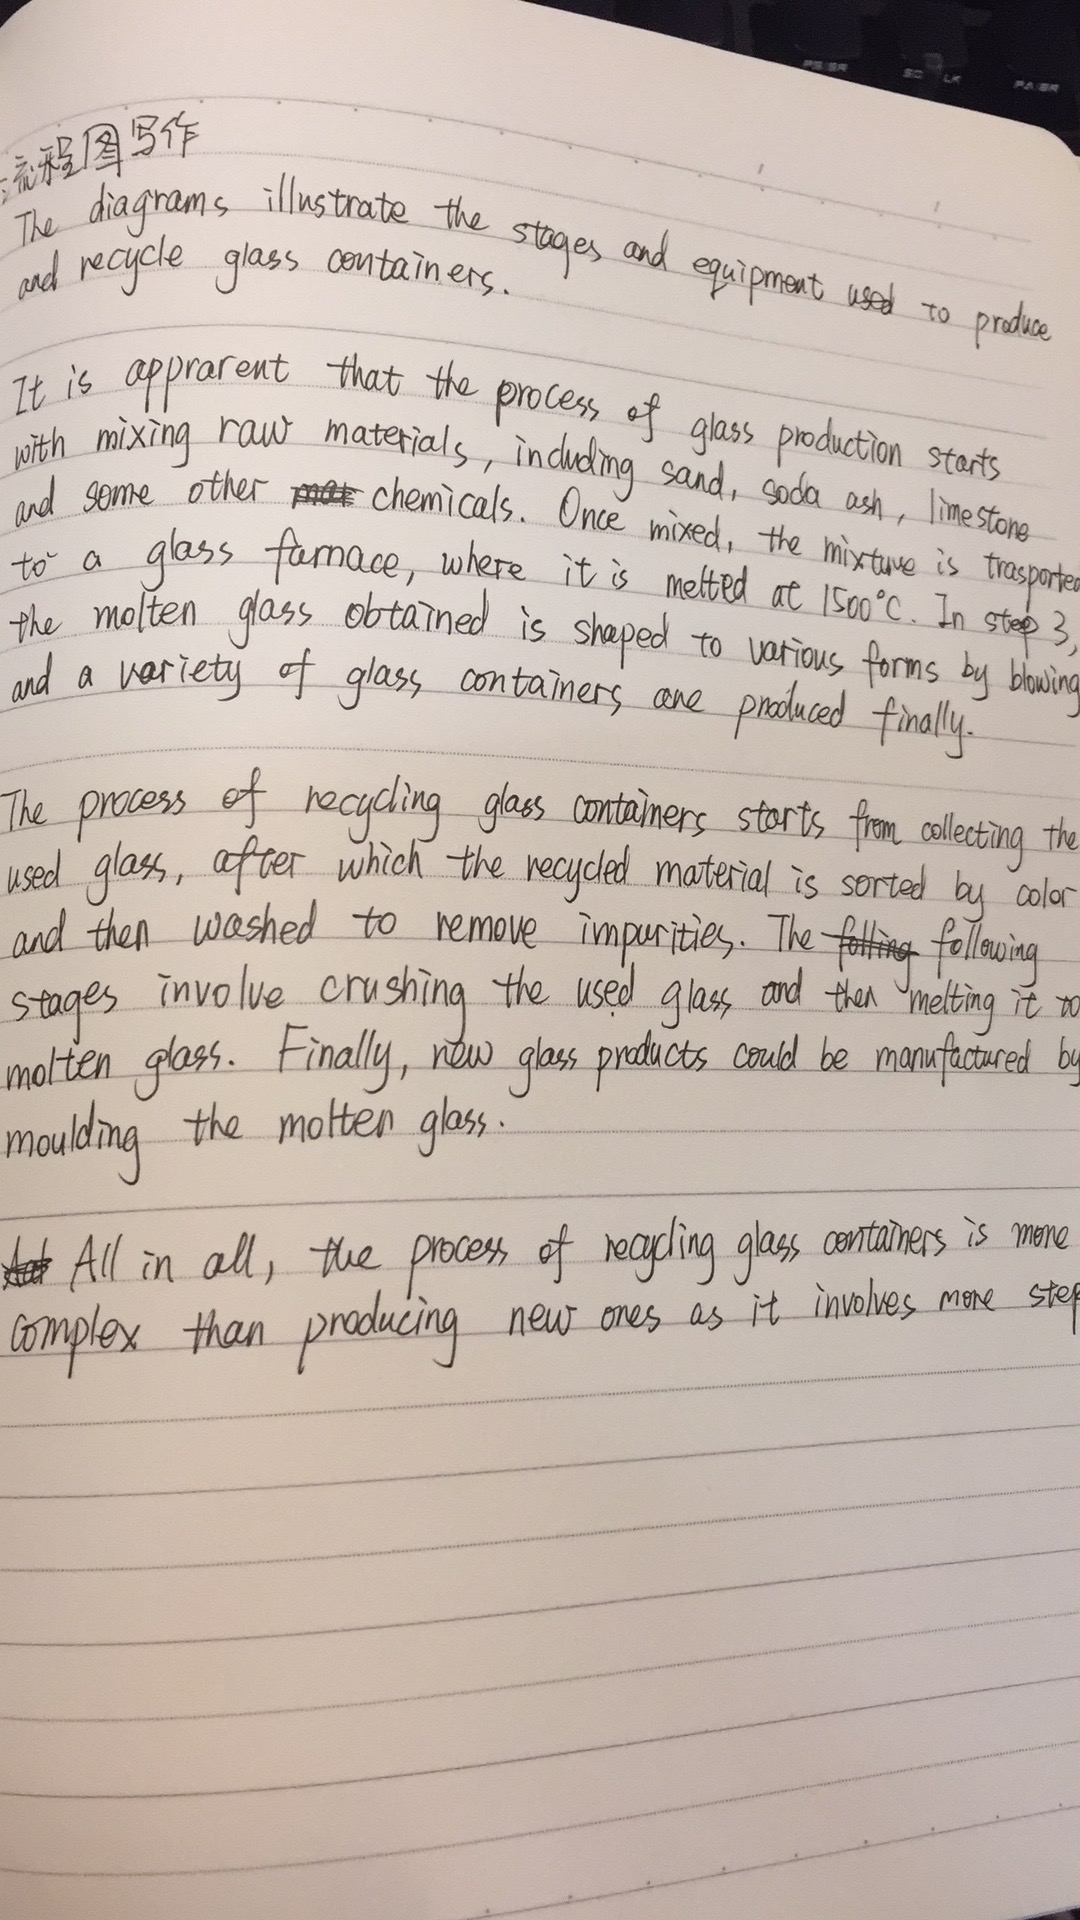 流程图写作
The diagrams illustrate the stages and equipment used to produce
and recycle glass containers.
It is apprarent that the process of glass production starts
with mixing raw materials, including sand, soda ash, limestone
and some other chemicals. Once mixed, the mixture is trasported
to a glass farnace, where it is melted at 1500°C. In step 3,
the molten glass obtained is shaped to various forms by blowing
and a variety of glass containers are produced finally.
The process of recycling glass containers starts from collecting the
used glass, after which the recycled material is sorted by color
and then washed to remove impurities. The following
stages involve crushing the used glass and then melting it to
molten glass. Finally, new glass products could be manufactured by
moulding the molten glass.
All in all, the process of recycling glass containers is more
complex than producing new ones as it involves more step